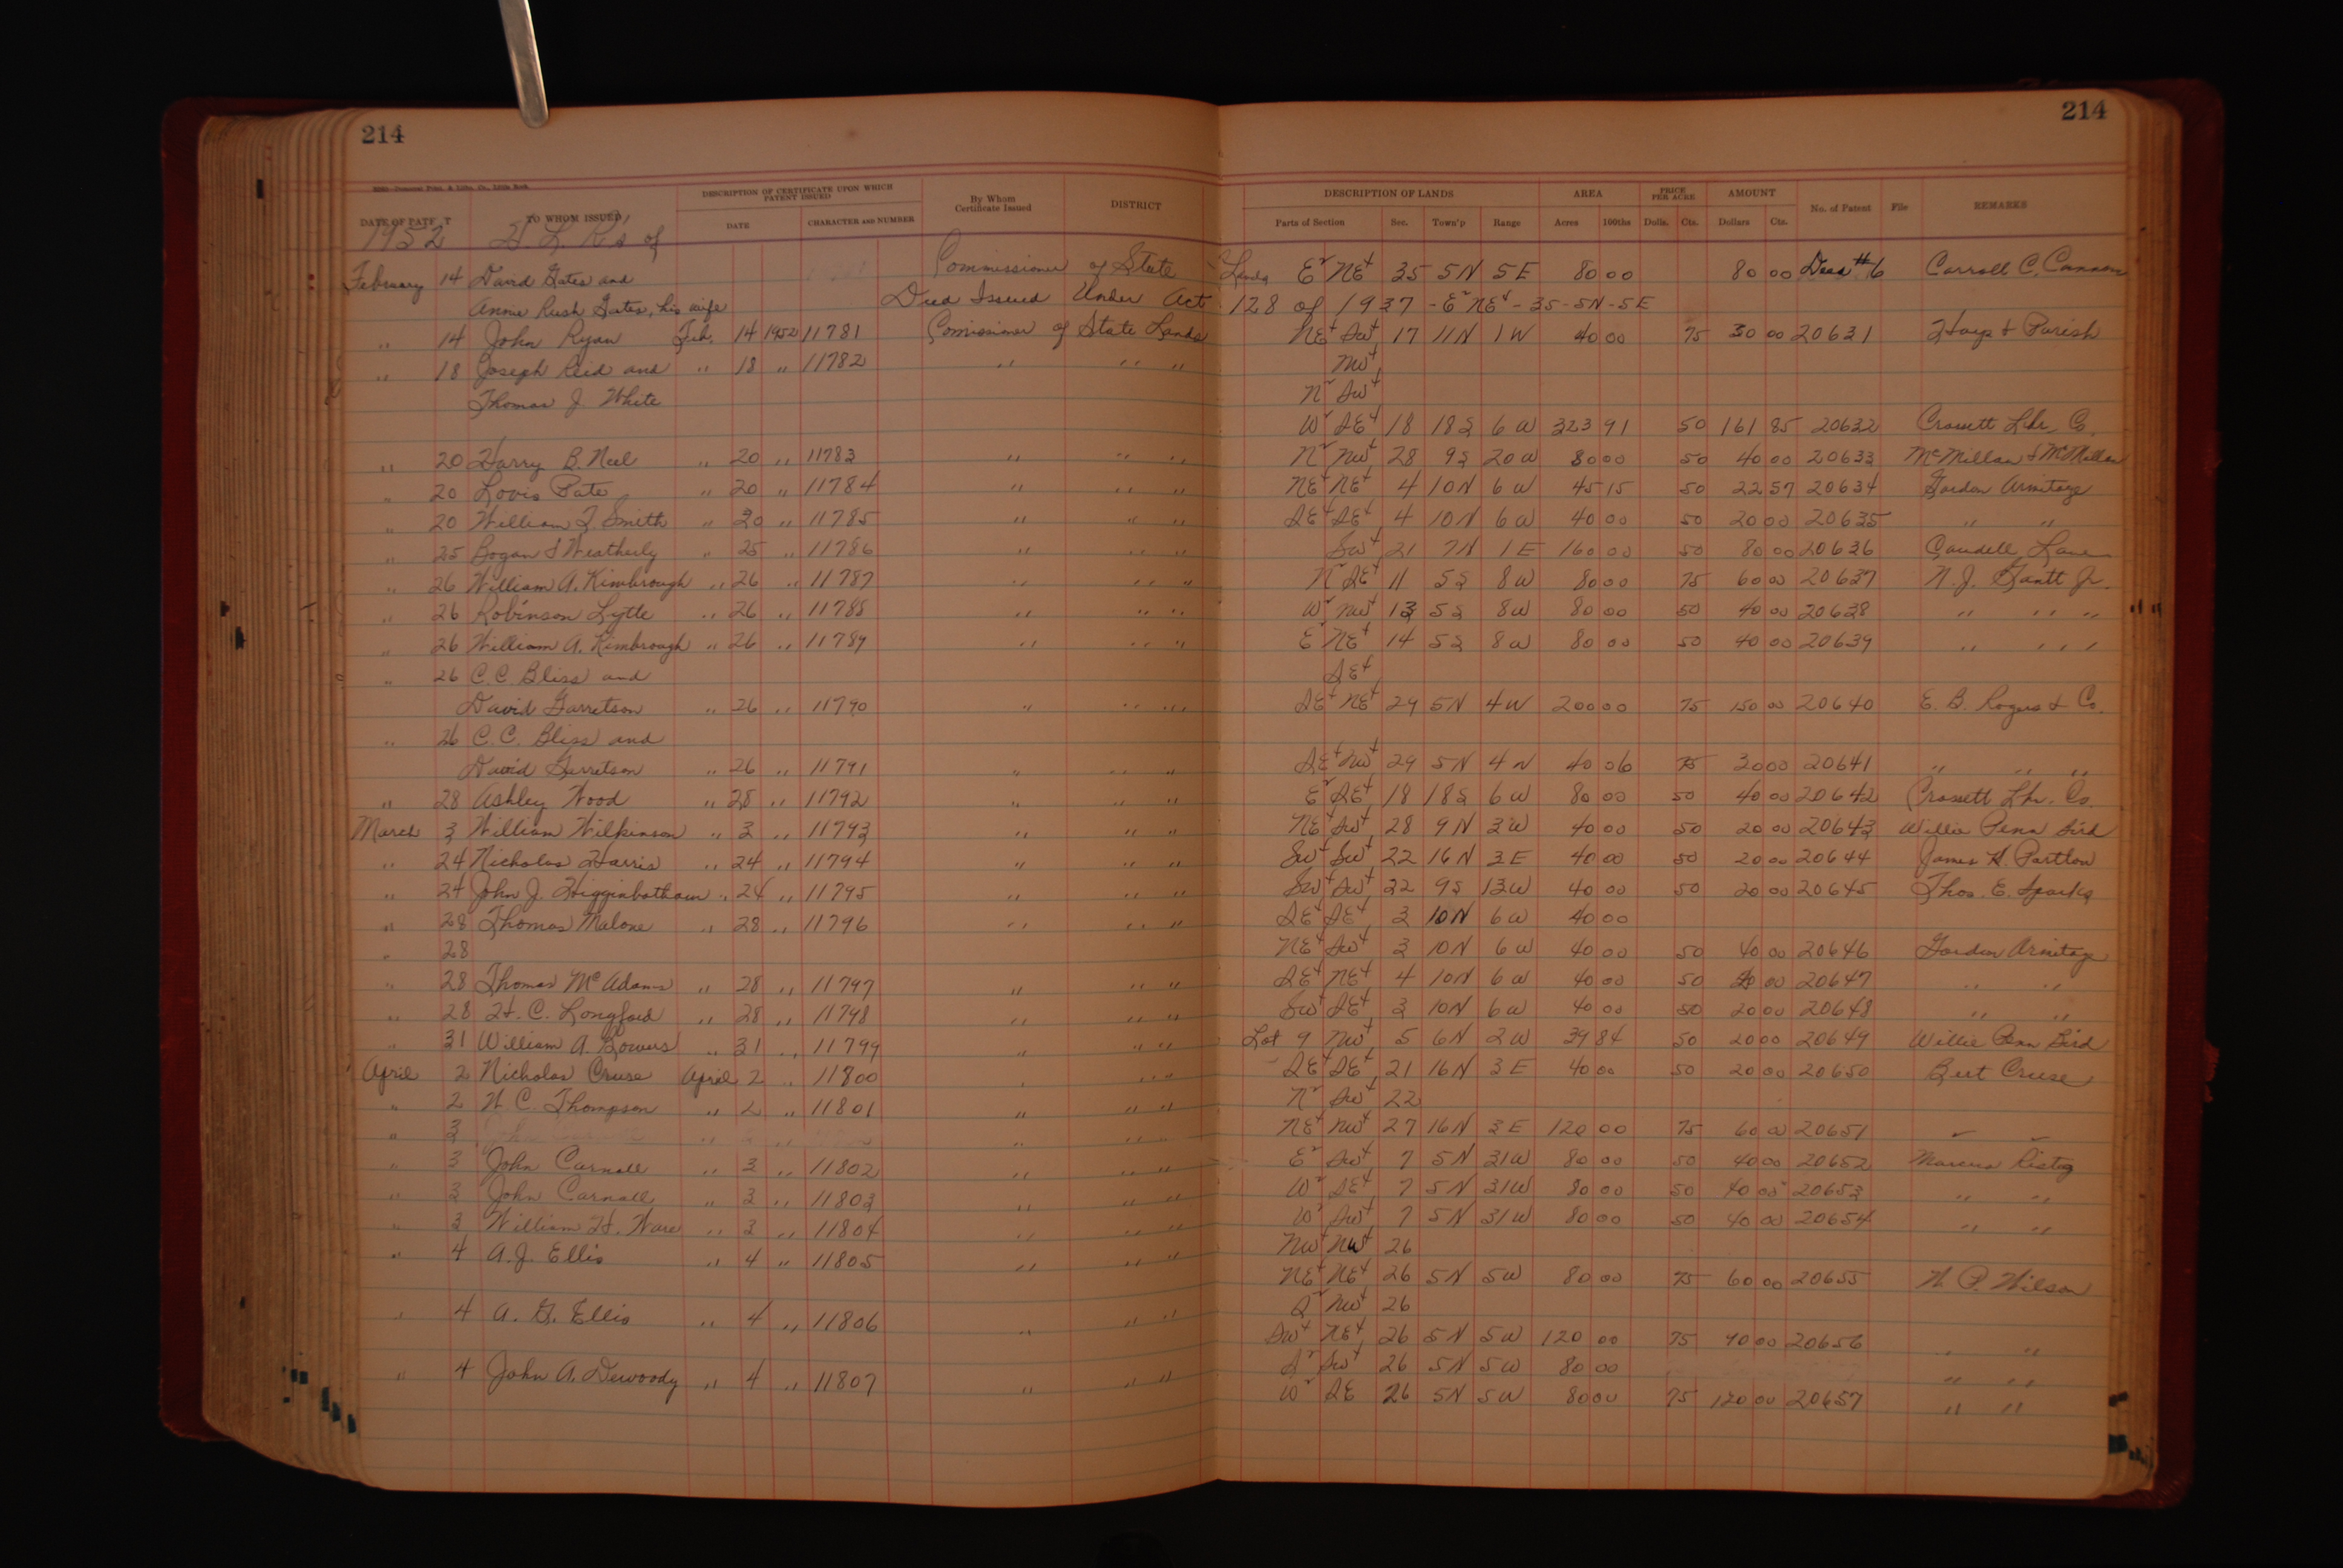 214 214
DESCRIPTION OF CERTIFICATE UPON WHICH PATENT ISSUED By Whom Certificate Issued DISTRICT DESCRIPTION OF LANDS AREA PRICE PER ACRE AMOUNT No. of Patent File REMARKS
DATE OF PATENT TO WHOM ISSUED DATE CHARACTER AND NUMBER Parts of Section Sec. Town'p Range Acres 100ths Dolls. Cts. Dollars Cts.
1952 H. L. Rs of
February 14 David Gates and Commissioner of State Lands E² NE⁴ 35 5N 5E 80 00 80 00 Deed #6 Carroll C. Cannon
Annie Rush Gates, his wife Deed Issued Under Act 128 of 1937 - E² NE⁴ - 35 - 5N - 5E
" 14 John Ryan Feb. 14 1952 11781 Comissioner of State Lands NE⁴ SW⁴ 17 11N 1W 40 00 75 30 00 20631 Hays & Parish
" 18 Joseph Reid and " 18 " 11782 " " " NW⁴
Thomas J. White N² SW⁴
W² SE⁴ 18 18S 6W 323 91 50 161 85 20632 Crossett Lbr. Co.
" 20 Harry B. Neel " 20 " 11783 " " " N² NW⁴ 28 9S 20W 80 00 50 40 00 20633 McMillan & McMillan
" 20 Lovis Pate " 20 " 11784 " " " NE⁴ NE⁴ 4 10N 6W 45 15 50 22 57 20634 Gordon Armitage
" 20 William T. Smith " 20 " 11785 " " " SE⁴ SE⁴ 4 10N 6W 40 00 50 20 00 20635 " "
" 25 Bogan & Weatherly " 25 " 11786 " " " SW⁴ 21 7N 1E 160 00 50 80 00 20636 Caudell Lane
" 26 William A. Kimbrough " 26 " 11787 " " " N² SE⁴ 11 5S 8W 80 00 75 60 00 20637 N. J. Gantt Jr.
" 26 Robinson Lytle " 26 " 11788 " " " W² NW⁴ 13 5S 8W 80 00 50 40 00 20638 " " "
" 26 William A. Kimbrough " 26 " 11789 " " " E² NE⁴ 14 5S 8W 80 00 50 40 00 20639 " " "
" 26 C. C. Bliss and SE⁴
David Garretson " 26 " 11790 " " " SE⁴ NE⁴ 29 5N 4W 200 00 75 150 00 20640 E. B. Rogers & Co.
" 26 C. C. Bliss and
David Garretson " 26 " 11791 " " " SE⁴ NW⁴ 29 5N 4W 40 06 75 30 00 20641 " " "
" 28 Ashley Wood " 28 " 11792 " " " E² SE⁴ 18 18S 6W 80 00 50 40 00 20642 Crossett Lbr. Co.
March 3 William Wilkinson " 3 " 11793 " " " NE⁴ SW⁴ 28 9N 3W 40 00 50 20 00 20643 Willie Penn Bird
" 24 Nicholas Harris " 24 " 11794 " " " SW⁴ SW⁴ 22 16N 3E 40 00 50 20 00 20644 James H. Partlow
" 24 John J. Higginbotham " 24 " 11795 " " " SW⁴ SW⁴ 22 9S 13W 40 00 50 20 00 20645 Thos. E. Sparks
" 28 Thomas Malone " 28 " 11796 " " " SE⁴ SE⁴ 3 10N 6W 40 00
" 28 NE⁴ SW⁴ 3 10N 6W 40 00 50 40 00 20646 Gordon Armitage
" 28 Thomas McAdams " 28 " 11797 " " " SE⁴ NE⁴ 4 10N 6W 40 00 50 20 00 20647 " "
" 28 H. C. Longford " 28 " 11798 " " " SW⁴ SE⁴ 3 10N 6W 40 00 50 20 00 20648 " "
" 31 William A. Bowers " 31 " 11799 " " " Lot 9 NW⁴ 5 6N 2W 39 84 50 20 00 20649 Willie Penn Bird
April 2 Nicholas Cruse April 2 " 11800 " " " SE⁴ SE⁴ 21 16N 3E 40 00 50 20 00 20650 Bert Cruse
" 2 W. C. Thompson " 2 " 11801 " " " N² SW⁴ 22
" 3 " " " " " NE⁴ NW⁴ 27 16N 3E 120 00 75 60 00 20651 " "
" 3 John Carnall " 3 " 11802 " " " E² SW⁴ 7 5N 31W 80 00 50 40 00 20652 Marcus Ristig
" 3 John Carnall " 3 " 11803 " " " W² SE⁴ 7 5N 31W 80 00 50 40 00 20653 " "
" 3 William H. Ware " 3 " 11804 " " " W² SW⁴ 7 5N 31W 80 00 50 40 00 20654 " "
" 4 A. J. Ellis " 4 " 11805 " " " NW⁴ NW⁴ 26
NE⁴ NE⁴ 26 5N 5W 80 00 75 60 00 20655 W. P. Wilson
" 4 A. G. Ellis " 4 " 11806 " " " S² NW⁴ 26
SW⁴ NE⁴ 26 5N 5W 120 00 75 90 00 20656 " "
" 4 John A. Dewoody " 4 " 11807 " " " S² SW⁴ 26 5N 5W 80 00 " "
W² SE 26 5N 5W 80 00 75 120 00 20657 " "